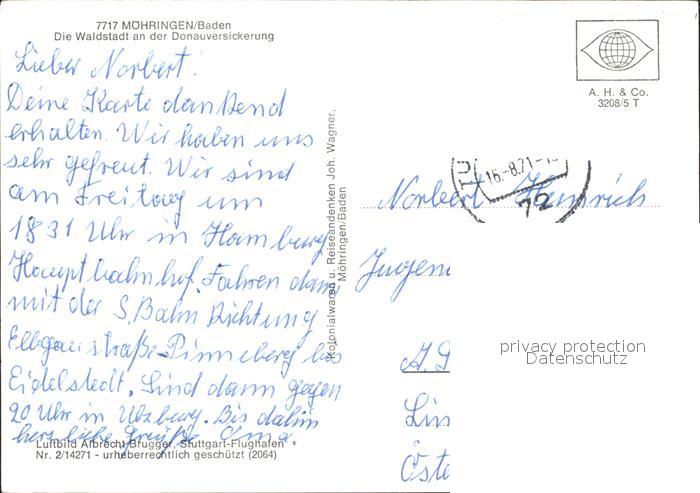 7717 MÖHRINGEN/Baden
Die Waldstadt an der Donauversickerung
Lieber Norbert!
Deine Karte dankend
erhalten. Wir haben uns
sehr gefreut. Wir sind
am Freitag um
1831 Uhr in Hamburg
Hauptbahnhof. Fahren dann
mit der S.Bahn Richtung
Elbgaustraße-Pinneberg bis
Eidelstedt. Sind dann gegen
20 Uhr in Ulzburg. Bis dahin
herzliche Grüße Oma.
Luftbild Albrecht Brugger, Stuttgart-Flughafen
Nr. 2/14271 - urheberrechtlich geschützt (2064)
Kolonialwaren u. Reiseandenken Joh. Wagner,
Möhringen/Baden
A. H. & Co.
3208/5 T
16.-8.71-1
72
Norbert Heinrich
Jugen
Lin
Öste
privacy protection
Datenschutz